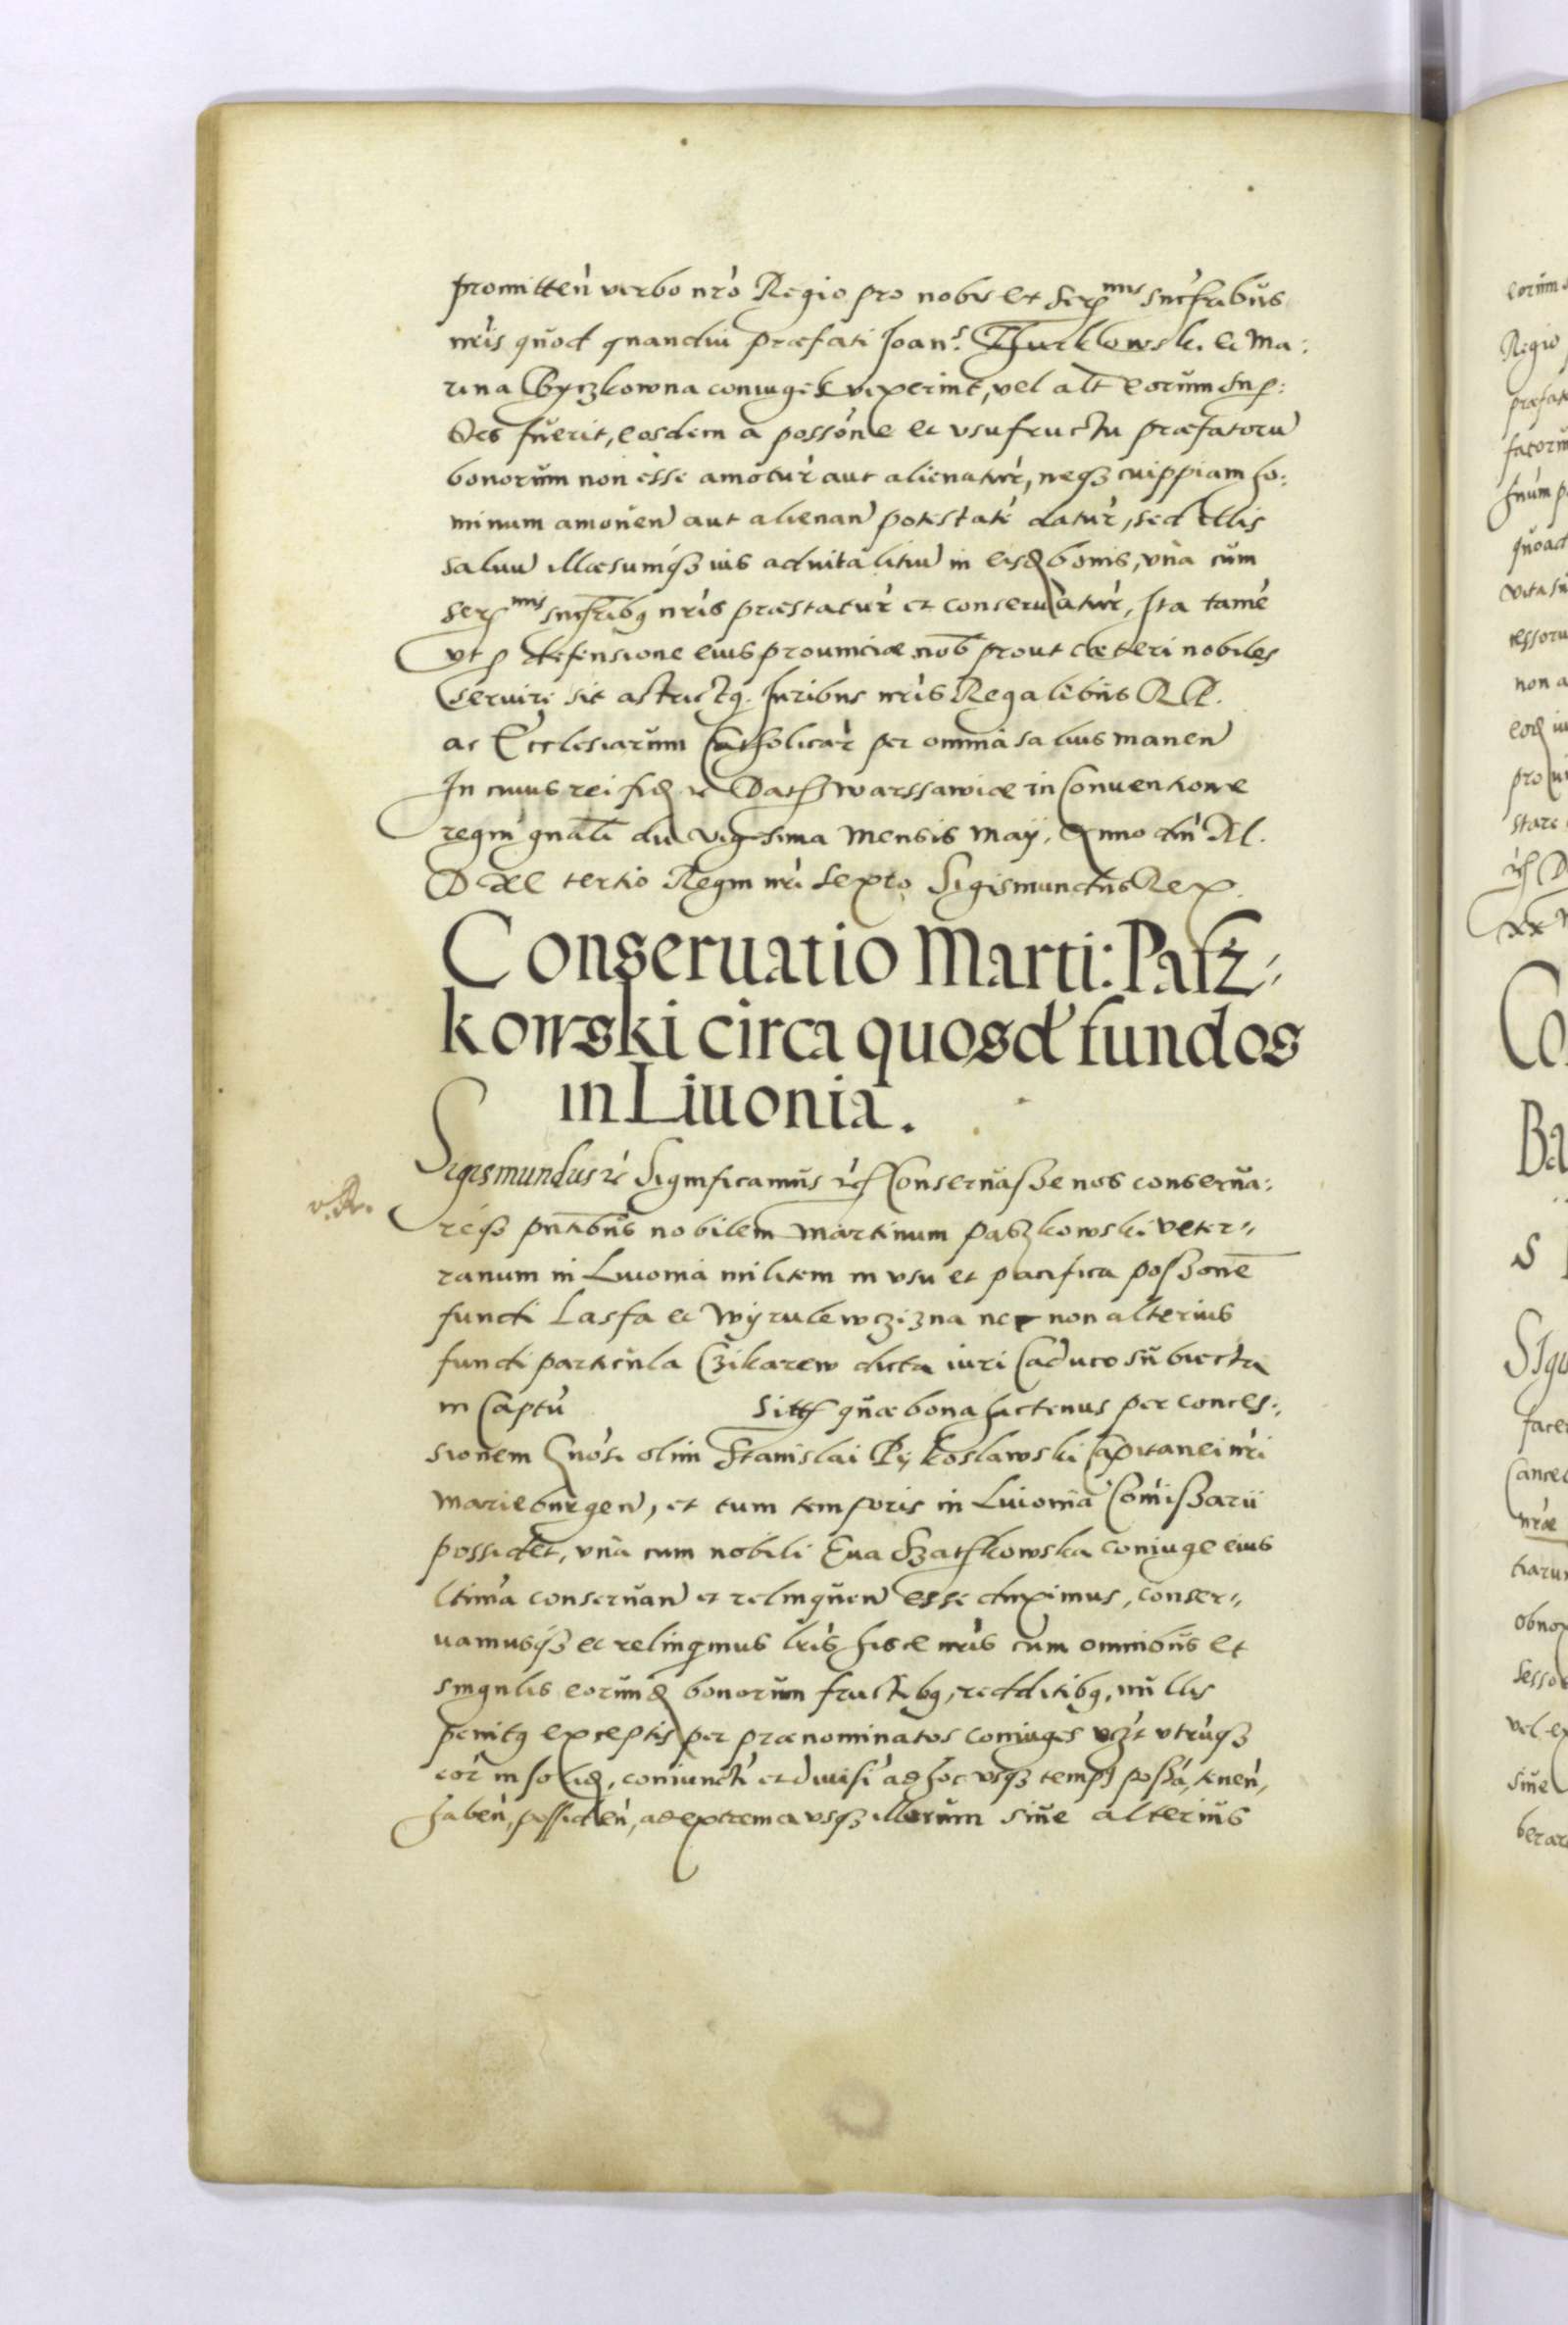 promitteń verbo nr̃o Regio pro nobis et Serᵐⁱˢ Sucr̃ibus
nr̃is quod quandiu præfati Joan: Thurkłowski et Ma:
rina Byczkowna coniuges vixerint, vel alt̃ eorum sup:
stes fuerit, eosdem a possone et vsufructu præfatorũ
bonorum non esse amotur aut alienatur, neqz cuippiam ho:
minum amoueń aut alienań potestatẽ datur, sed illis
saluũ illæsumqz ius aduitalitiũ in eisd bonis, vna cum
Serᵐⁱˢ sucr̃ibq nr̃is præstatur et conseruatur, Ita tamẽ
vt p defensione eius prouinciæ nob̃ prout cæteri nobiles
seruire sit astrictq. Iuribus nr̃is Regalibus R R.
ac Ecclesiarum Catholicar per omnia saluis maneń
In cuius rei fid etc Dat Warssawiæ in Conuentione
regni gnali die vigesima Mensis Maij. Anno dni M.
D XC tertio Regni nr̃i Sexto Sigismundus Rex.
Conseruatio Marti: Pasz-
kowski circa quosd fundos
in Liuonia.
Sigismundus etc Significamus etc Conseruasse nos conserua:
v. R.
reqz pñtibus nobilem Martinum Paszkowski veter-
ranum in Liuonia militem in vsu et pacifica possone
fundi Lasfa et Wyrulewczizna nec non alterius
fundi particula Czikarew dicta iuri Caduco subiecta
in Captu sitt quæ bona hactenus per conces:
sionem Gnosi olim Stanislai Pykosławski Capitanei nr̃i
Marieburgeń, et tum temporis in Liuonia Comissarii
possidet, vna cum nobili Eua Szatkowska coniuge eius
ltima conseruań et relinqueń esse duximus, conser-
uamusqz et relinqmus lr̃is hisce nr̃is cum omnibus et
singulis eorund bonorum fructibq, redditibq, nullis
penitq exceptis per prænominatos coniuges vzt vtruqz
eor in solid, coniuncti et diuisi ad hoc vsqz temps possa, teneń,
habeń, possideń, ad extrema vsqz illorum siue alterius